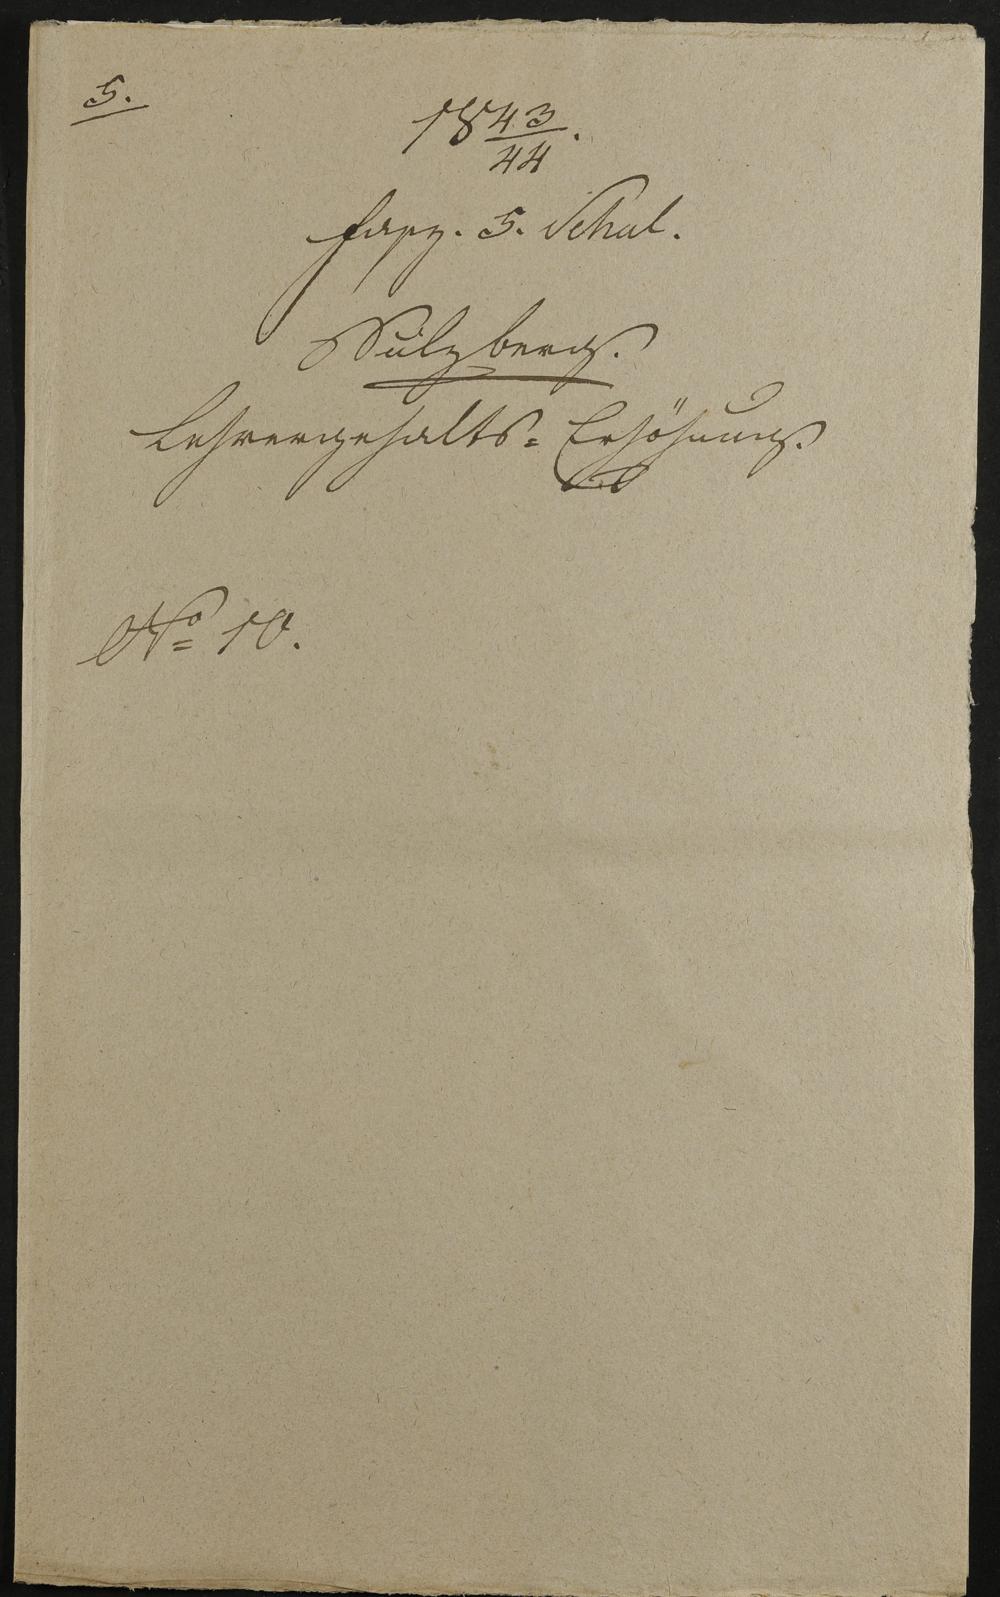 5.
1843/44.
Fasz. 5. Schul.
Sulzberg.
Lehrergehalts= Erhöhung.
No 10.